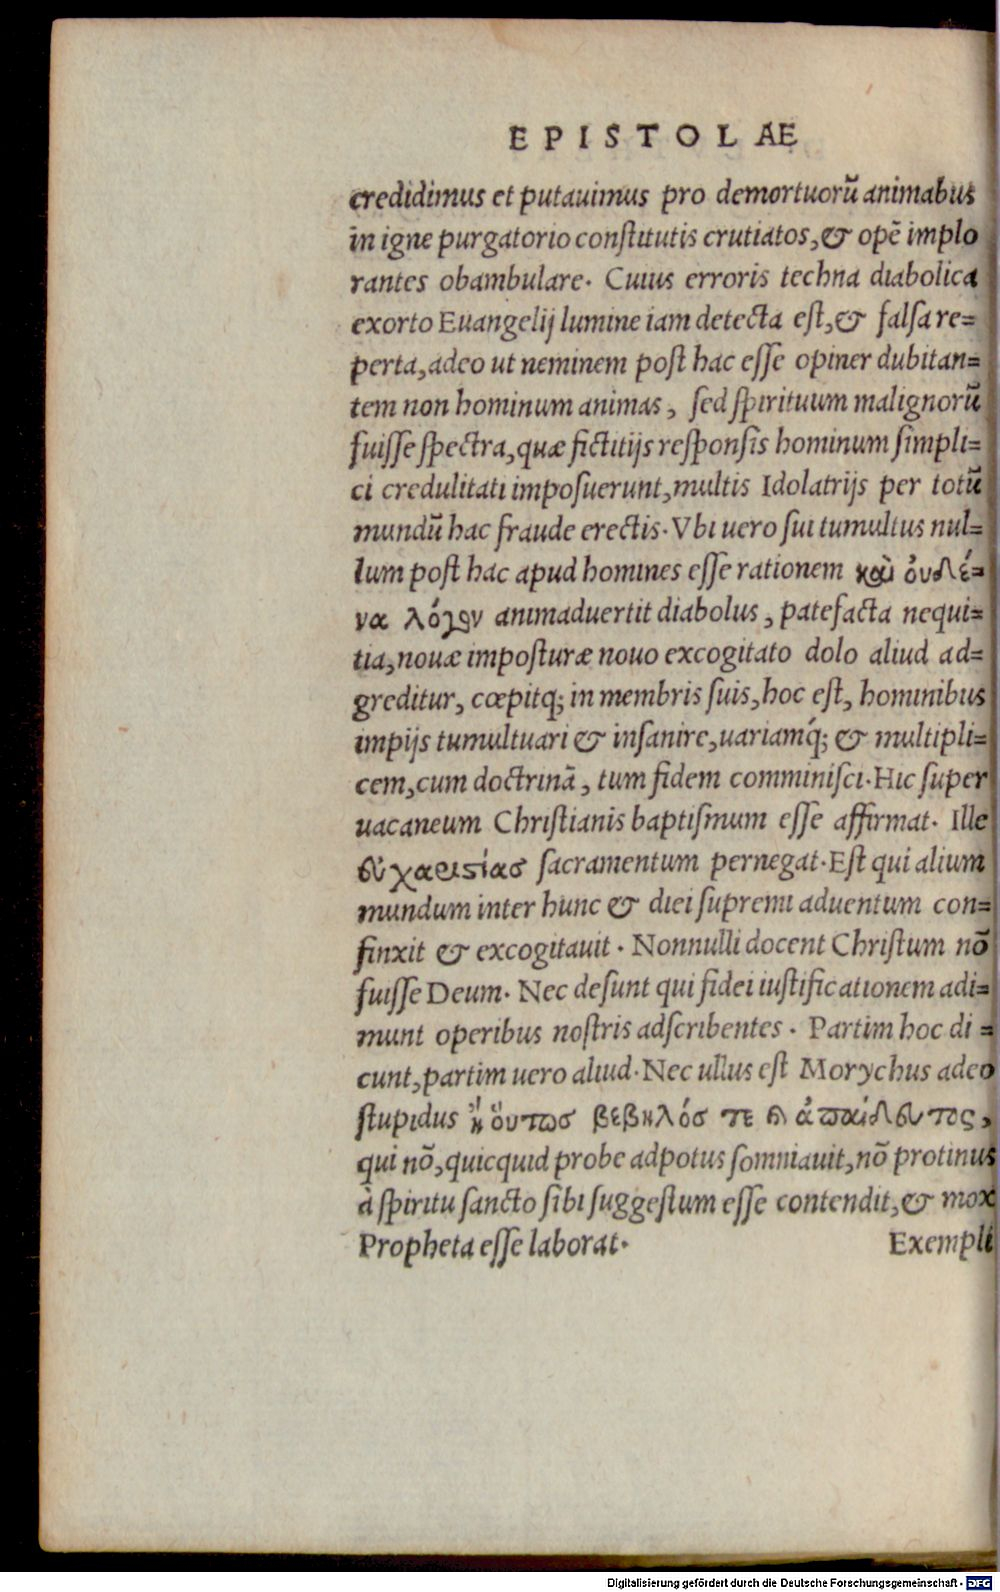 EPISTOLAE
credidimus et putauimus pro demortuorū animabus
in igne purgatorio constitutis crutiatos,& opē implo
rantes obambulare. Cuius erroris techna diabolica
exorto Euangelij lumine iam detecta est,& falsa re=
perta,adeo ut neminem post hac esse opiner dubitan=
tem non hominum animas, sed spirituum malignorū
fuisse spectra,quæ fictitijs responsis hominum simpli=
ci credulitati imposuerunt,multis Idolatrijs per totū
mundū hac fraude erectis. Vbi uero sui tumultus nul=
lum post hac apud homines esse rationem καὶ ὀυδέ=
να λόγον animaduertit diabolus, patefacta nequi=
tia,nouæ imposturæ nouo excogitato dolo aliud ad=
greditur, cœpitq; in membris suis,hoc est, hominibus
impijs tumultuari & insanire,uariamq́; & multipli=
cem,cum doctrinā, tum fidem comminisci. Hic super
uacaneum Christianis baptismum esse affirmat. Ille
ευχαριστίας sacramentum pernegat. Est qui alium
mundum inter hunc & diei supremi aduentum con=
finxit & excogitauit. Nonnulli docent Christum nō
fuisse Deum. Nec desunt qui fidei iustificationem adi=
munt operibus nostris adscribentes. Partim hoc di=
cunt,partim uero aliud. Nec ullus est Morychus adeo
stupidus ἢ ὅυτως βεβηλός τε καὶ ἀπαίδευτος,
qui nō,quicquid probe adpotus somniauit,nō protinus
à spiritu sancto sibi suggestum esse contendit,& mox
Propheta esse laborat.
Exempli
Digitalisierung gefördert durch die Deutsche Forschungsgemeinschaft - DFG